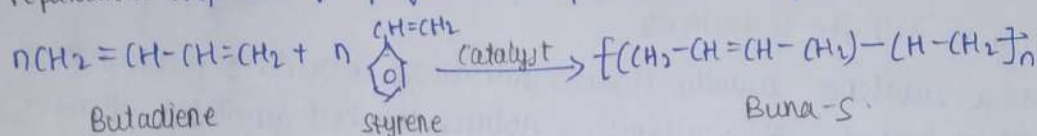 CH=CH2
nCH2=CH-CH=CH2 + n catalyst [(CH2-CH=CH-CH2)-CH-CH2]n
Butadiene Styrene Buna-S.